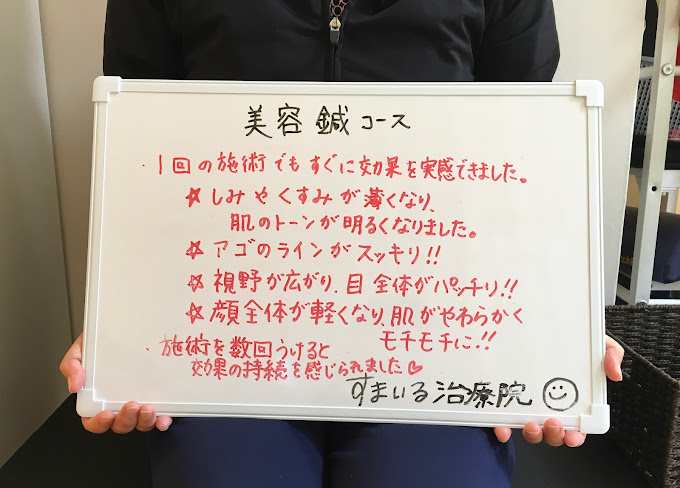 美容鍼コース
・1回の施術でもすぐに効果を実感できました。
☆しみやくすみが薄くなり、
肌のトーンが明るくなりました。
☆アゴのラインがスッキリ!!
☆視野が広がり、目全体がパッチリ!!
☆顔全体が軽くなり、肌がやわらかく
モチモチに!!
・施術を数回うけると
効果の持続を感じられました♡
すまいる治療院